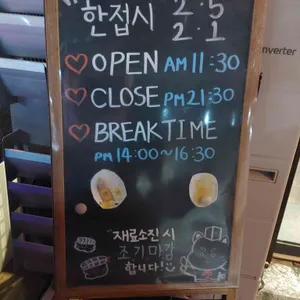 한접시 2.5
2.1
OPEN AM 11:30
CLOSE PM 21:30
BREAKTIME
PM 14:00~16:30
재료소진시
조기마감
합니다!
nverter